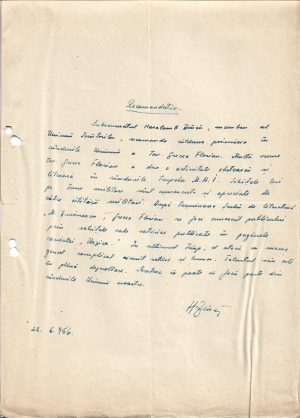 Recomandație.
Subsemnatul Haralamb Zincă, membru al
Uniunii Scriitorilor, recomand călduros primirea în
rândurile Uniunii a Tov. Grecea Florian. Multă vreme
Tov. Grecea Florian a dus o activitate obștească și
literară în rândurile Trupelor M.A.I. Schițele lui
pe teme militare sînt cunoscute și apreciate de
către cititorii militari. După terminarea Școlii de literatură
"M. Eminescu", Grecea Florian se face cunoscut publicului
prin schițele sale satirice publicate în paginile
revistei "Urzica". În ultimul timp, el atacă cu succes
genul complicat acesta satirei și umor. Talentul său este
în plină dezvoltare. Merita să facă parte din
rîndurile Uniunii noastre.
HZincă
22. 6. 956.